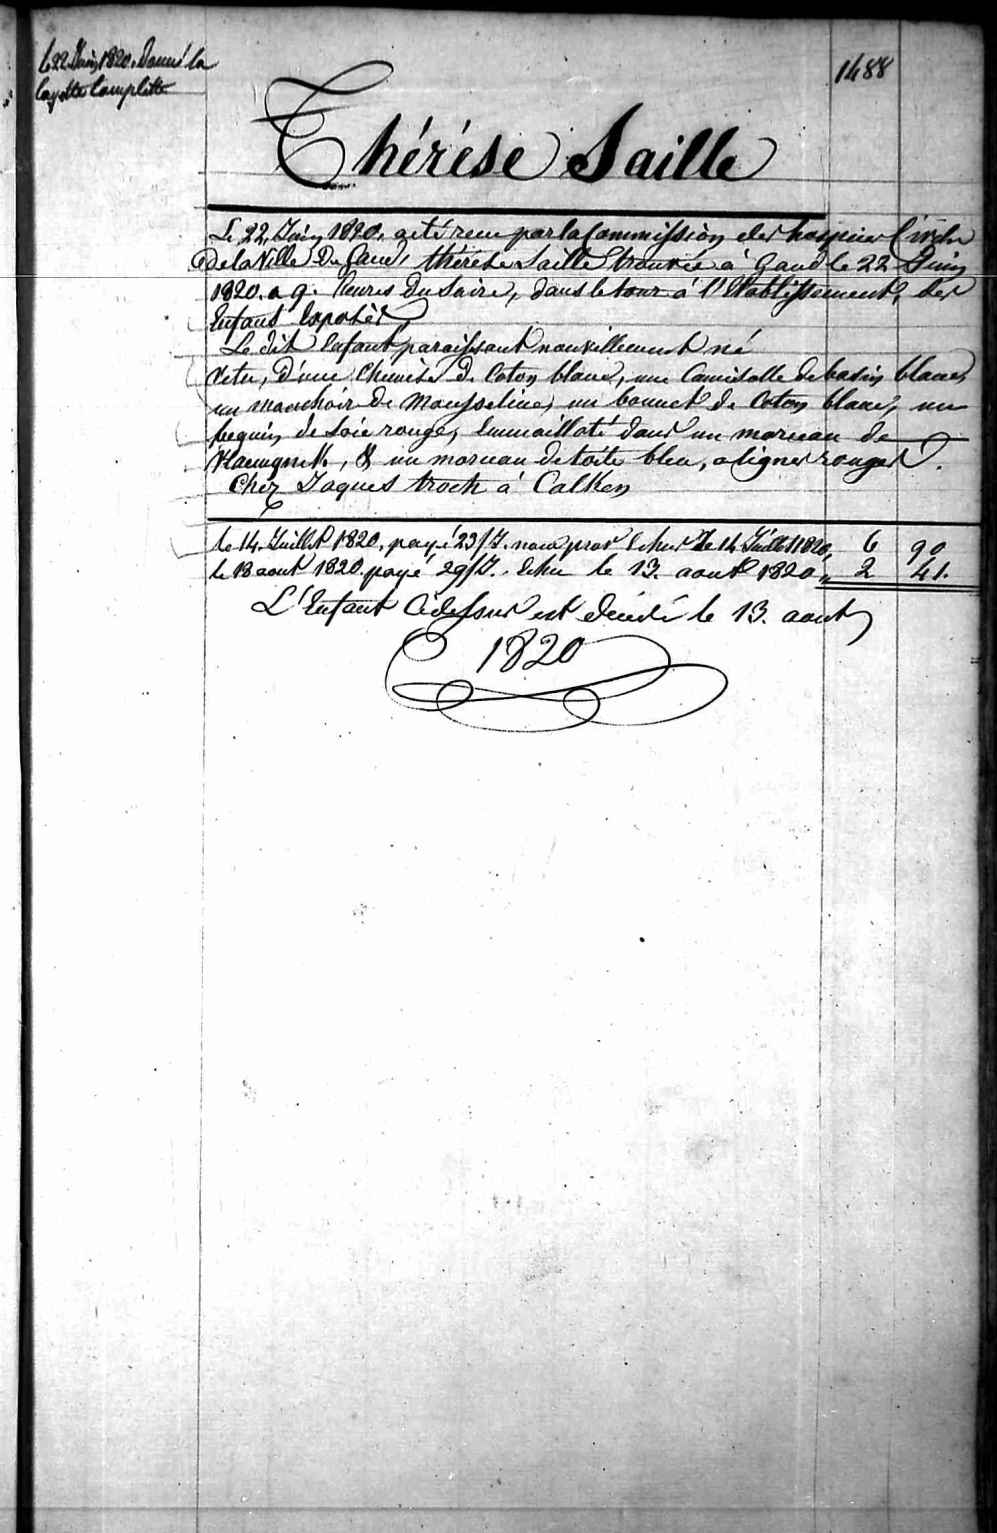 Le 22 Juin 1820. Donné la
layette Complette
1488
Thérése Saille
Le 22 Juin 1820. a été recu par la Commission des hospices Civils
de la Ville de Gand, thérése Saille trouvée à Gand le 22 Juin
1820. a 9. heures du Soire, dans le tour á l'Etablissement, des
Enfans Exposés,
Le dit Enfant paraissant nouvellement né
Vetu, d'une Chemise de Coton blanc, une Camisolle de basin blanc,
un mouchoir de Mousseline, un bonnet de Coton blanc, un
beguin de Soie rouge, Emmailloté dans un morceau de
, & un morceau de toile bleu, a lignes rouges.
Chez Jaques troch á Calken
le 14. Juillet 1820. payé 23/J. nour Echu le 14 Juillet 1820,, 6 90
le 18 aout 1820. payé 29/J. Echu le 13. aout 1820 ,, 2 41.
L'Enfant Cidessus est décédé le 13. aout
1820